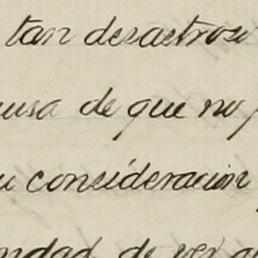 tan desastroso
usa de que no p
u consideración
ndad de ver a